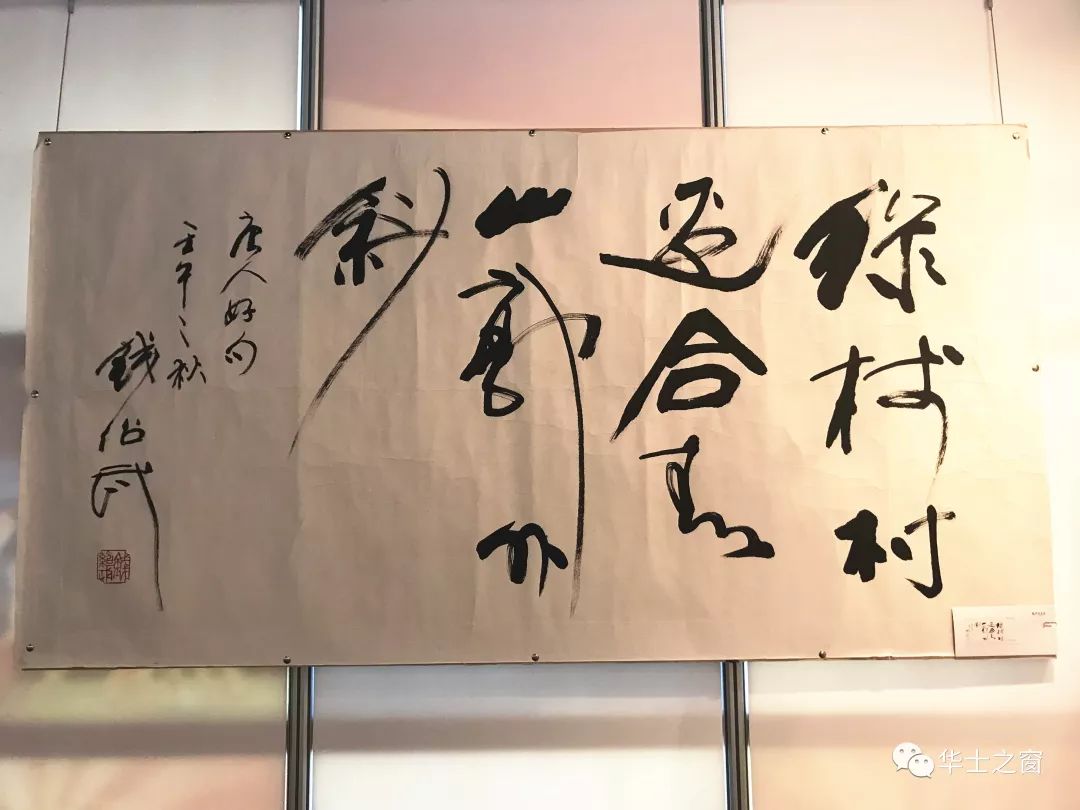 綠樹村
邊合青
山郭外
斜
唐人好句
壬午之秋
錢紹武
华士之窗